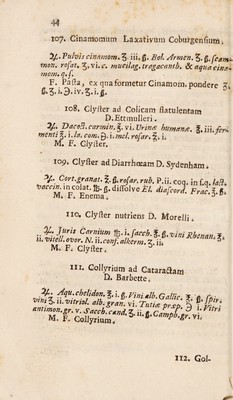 44
107. Cinamomum Laxativum Coburgensium.
♃. Pulvis cinamom. ʒ. iii. ß. Bol. Armen. ʒ. ß. scam-
mon. rosat. ʒ. vi. c. mucilag. tragacanth. & aqua cina-
mom. q. s.
F. Pasta, ex qua formetur Cinamom. pondere ʒ.
ß. ʒ. i. ℈. iv. ʒ. i. ß.
108. Clyster ad Colicam flatulentam
D. Ettmulleri.
♃. Dacoct. carmin. ℥. vi. Urinæ humanæ. ℥. iii. fer-
menti ℥. i. la. com. ℈. i. mel. rosar. ℥. i.
M. F. Clyster.
109. Clyster ad Diarrhœam D. Sydenham.
♃. Cort. granat. ℥. ß. rosar. rub. P. ii. coq. in s. q. lact.
vaccin. in colat. ℔. ß. dissolve El. diascord. Frac. ℥. ß.
M. F. Enema.
110. Clyster nutriens D. Morelli.
♃. Juris Carnium ℔. i. sacch. ℥. ß. vini Rhenan. ℥.
ii. vitell. ovor. N. ii. conf. alkerm. ʒ. ii.
M. F. Clyster.
111. Collyrium ad Cataractam
D. Barbette.
♃. Aqu. chelidon. ℥. i. ß. Vini alb. Gallic. ℥. ß. spir.
vini ʒ. ii. vitriol. alb. gran. vi. Tutiæ præp. ℈ i. Vitri
antimon. gr. v. Sacch. cand. ʒ. ii. ß. Camph. gr. vi.
M. F. Collyrium.
112. Gol-